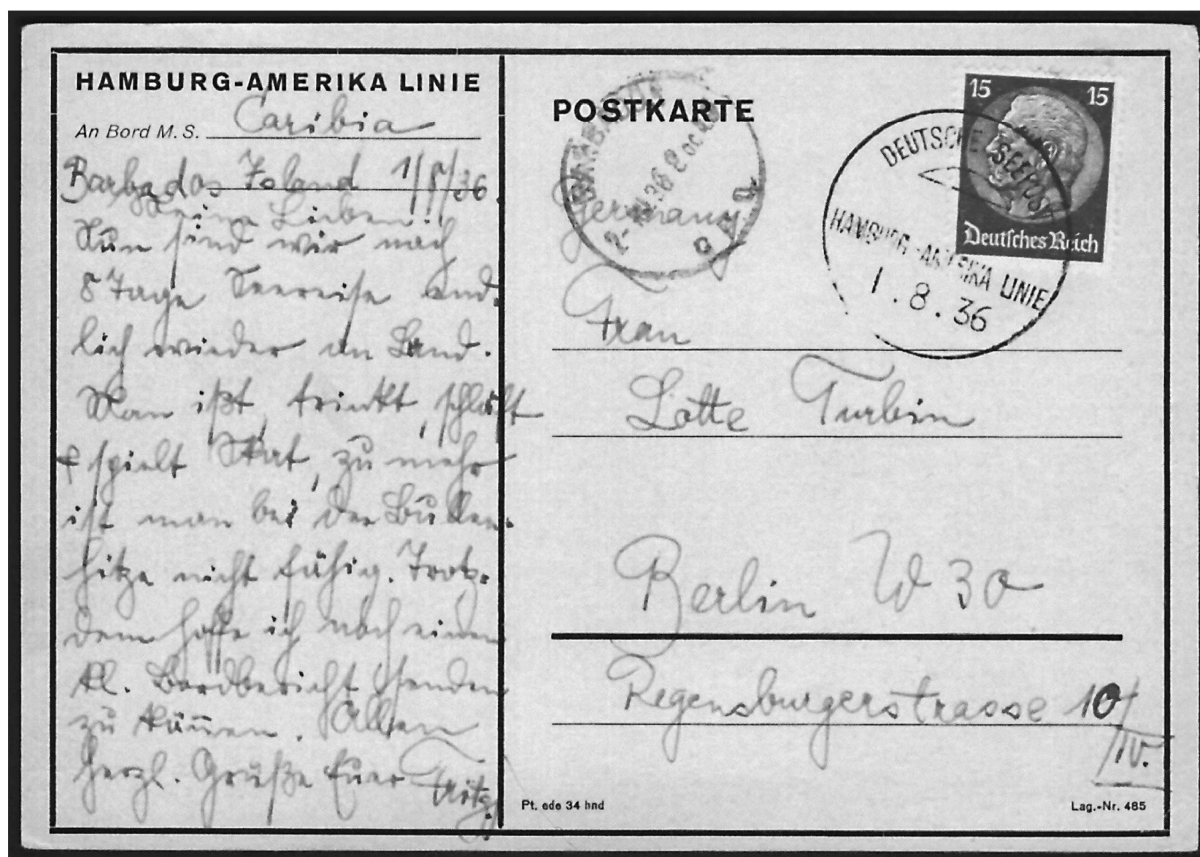 HAMBURG-AMERIKA LINIE
An Bord M. S. Caribia
Barbados Island 1/8/36.
Meine Lieben!!
Nun sind wir nach
8 Tage Seereise end-
lich wieder an Land.
Man ißt, trinkt, schläft
& spielt Skat, zu mehr
ist man bei der Bullen-
hitze nicht fähig. Trotz-
dem hoffe ich noch einen
kl. Bordbericht senden
zu können. Allen
herzl. Grüße Euer Fritz
POSTKARTE
BARBADOS
2- 36
G.P.O.
Germany
15 15
Deutsches Reich
DEUTSCHE SEEPOST
HAMBURG-AMERIKA LINIE
1.8.36
Frau
Lotte Turbin
Berlin W 30
Regensburgerstrasse 10/
IV.
Pt. ede 34 hnd
Lag.-Nr. 485